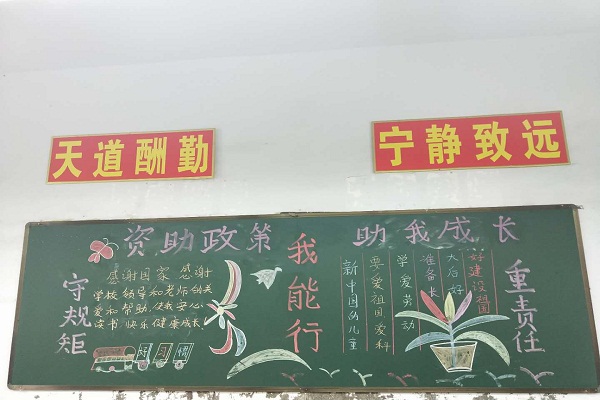 天道酬勤
宁静致远
资助政策
助我成长
守规矩
感谢国家 感谢
学校 领导和老师的关
爱和帮助,使我安心
读书 快乐 健康成长
好习惯
我能行
新中国的儿童
要爱祖国爱科
学爱劳动
准备长
大后好
好建设祖国
重责任